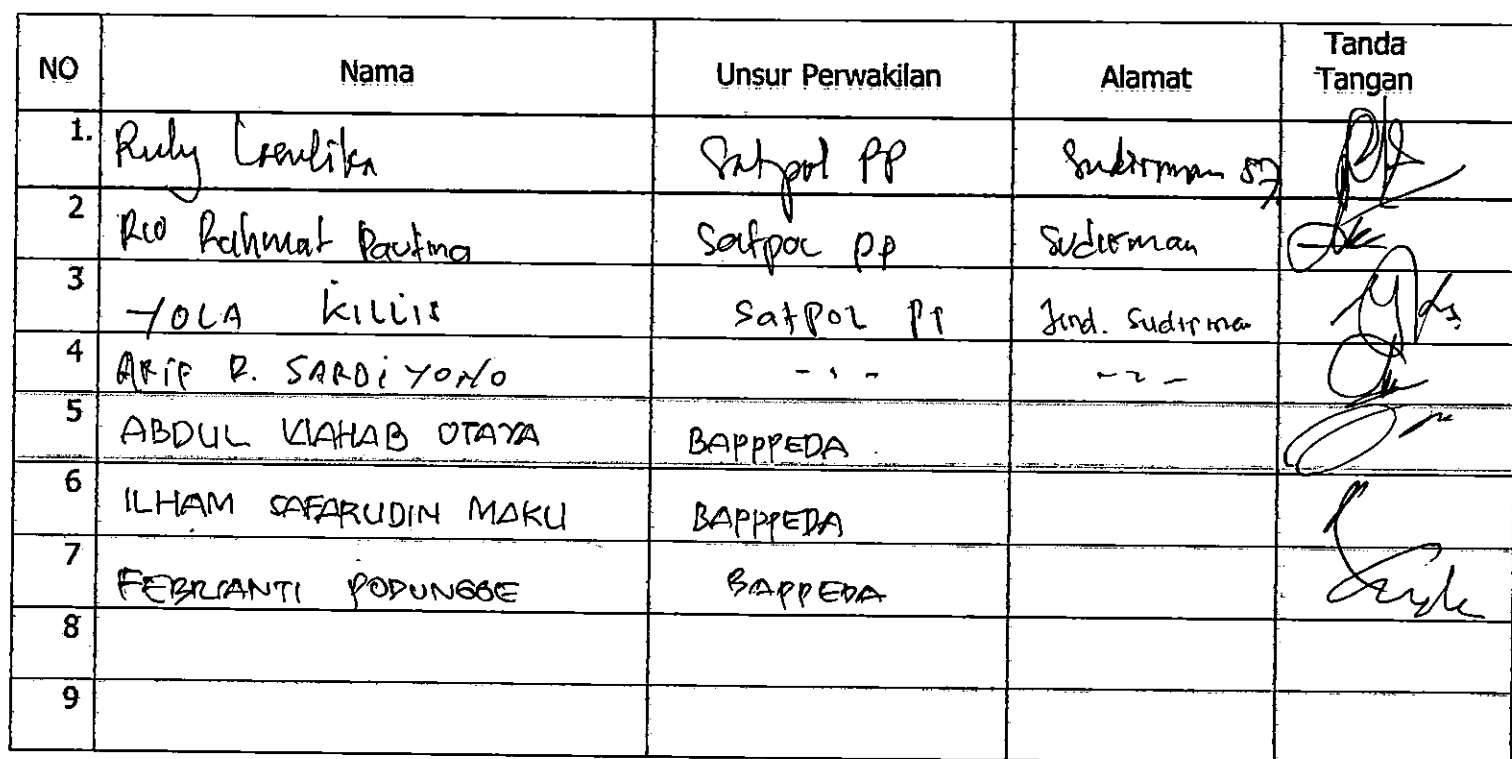 NO Nama Unsur Perwakilan Alamat Tanda Tangan
1. Ruly Satpol PP Sudirman 57
2 Rio Rahmat Pautina Satpol PP Sudirman
3 YOLA KILLIS Satpol PP Jend. Sudirman
4 ARIF R. SARDIYONO - , - - 2 -
5 ABDUL WAHAB OTAYA BAPPPEDA
6 ILHAM SAFARUDIN MAKU BAPPPEDA
7 FEBRIANTI PODUNGGE BAPPEDA
8
9